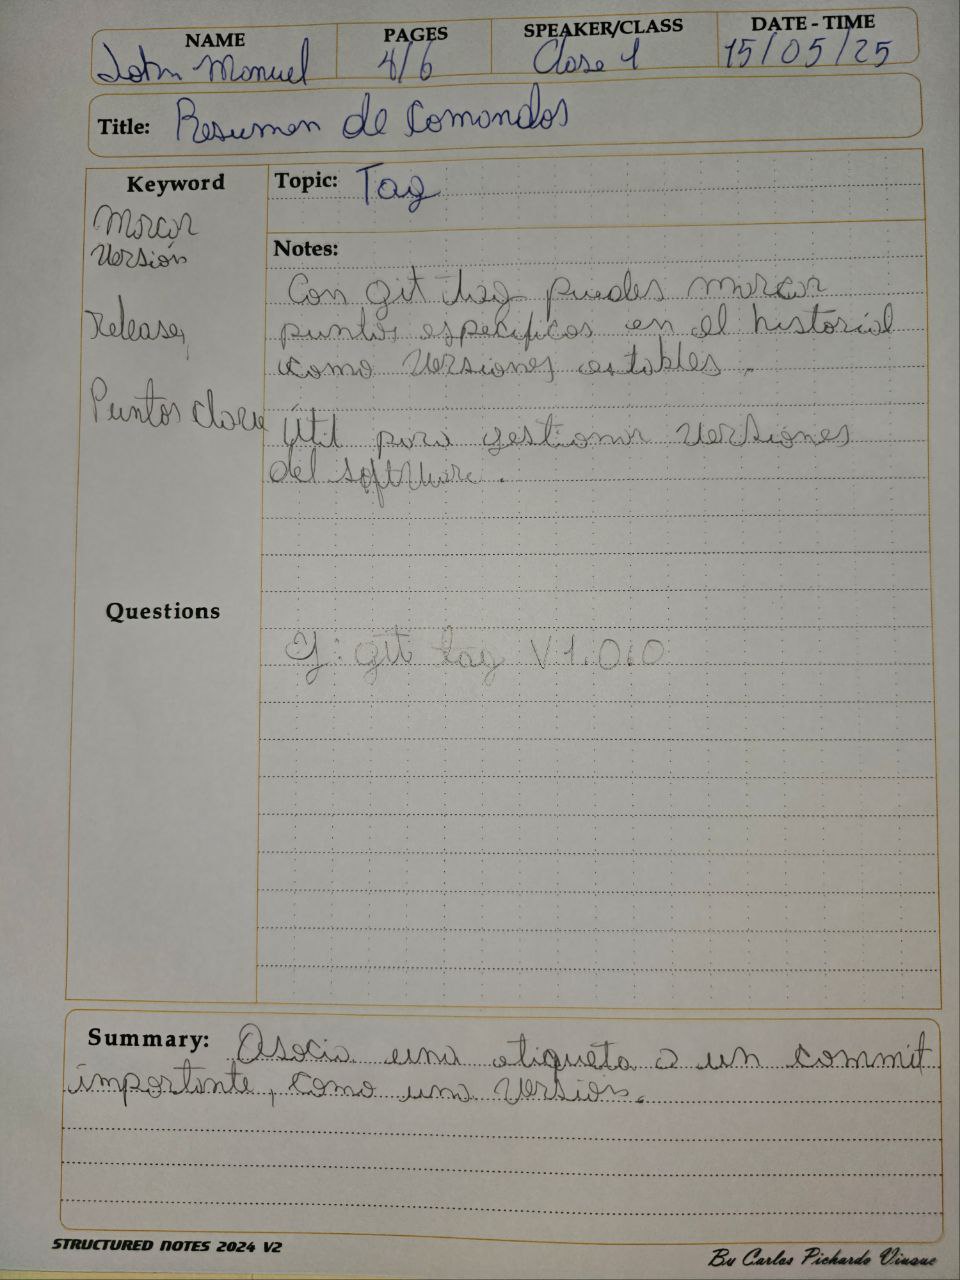 NAME PAGES SPEAKER/CLASS DATE - TIME
John Manuel 4/6 Clase 1 15/05/25
Title: Resumen de Comandos
Keyword
Marcar
Versión
Releases
Puntos clave
Topic: Tag
Notes:
Con git tag puedes marcar
puntos especificos en el historial
como versiones estables.
Útil para gestionar versiones
del software.
Questions
Ej: git tag V1.0.0
Summary: Asocia una etiqueta a un commit
importante, como una version.
STRUCTURED NOTES 2024 V2
By Carlos Pichardo Viuque